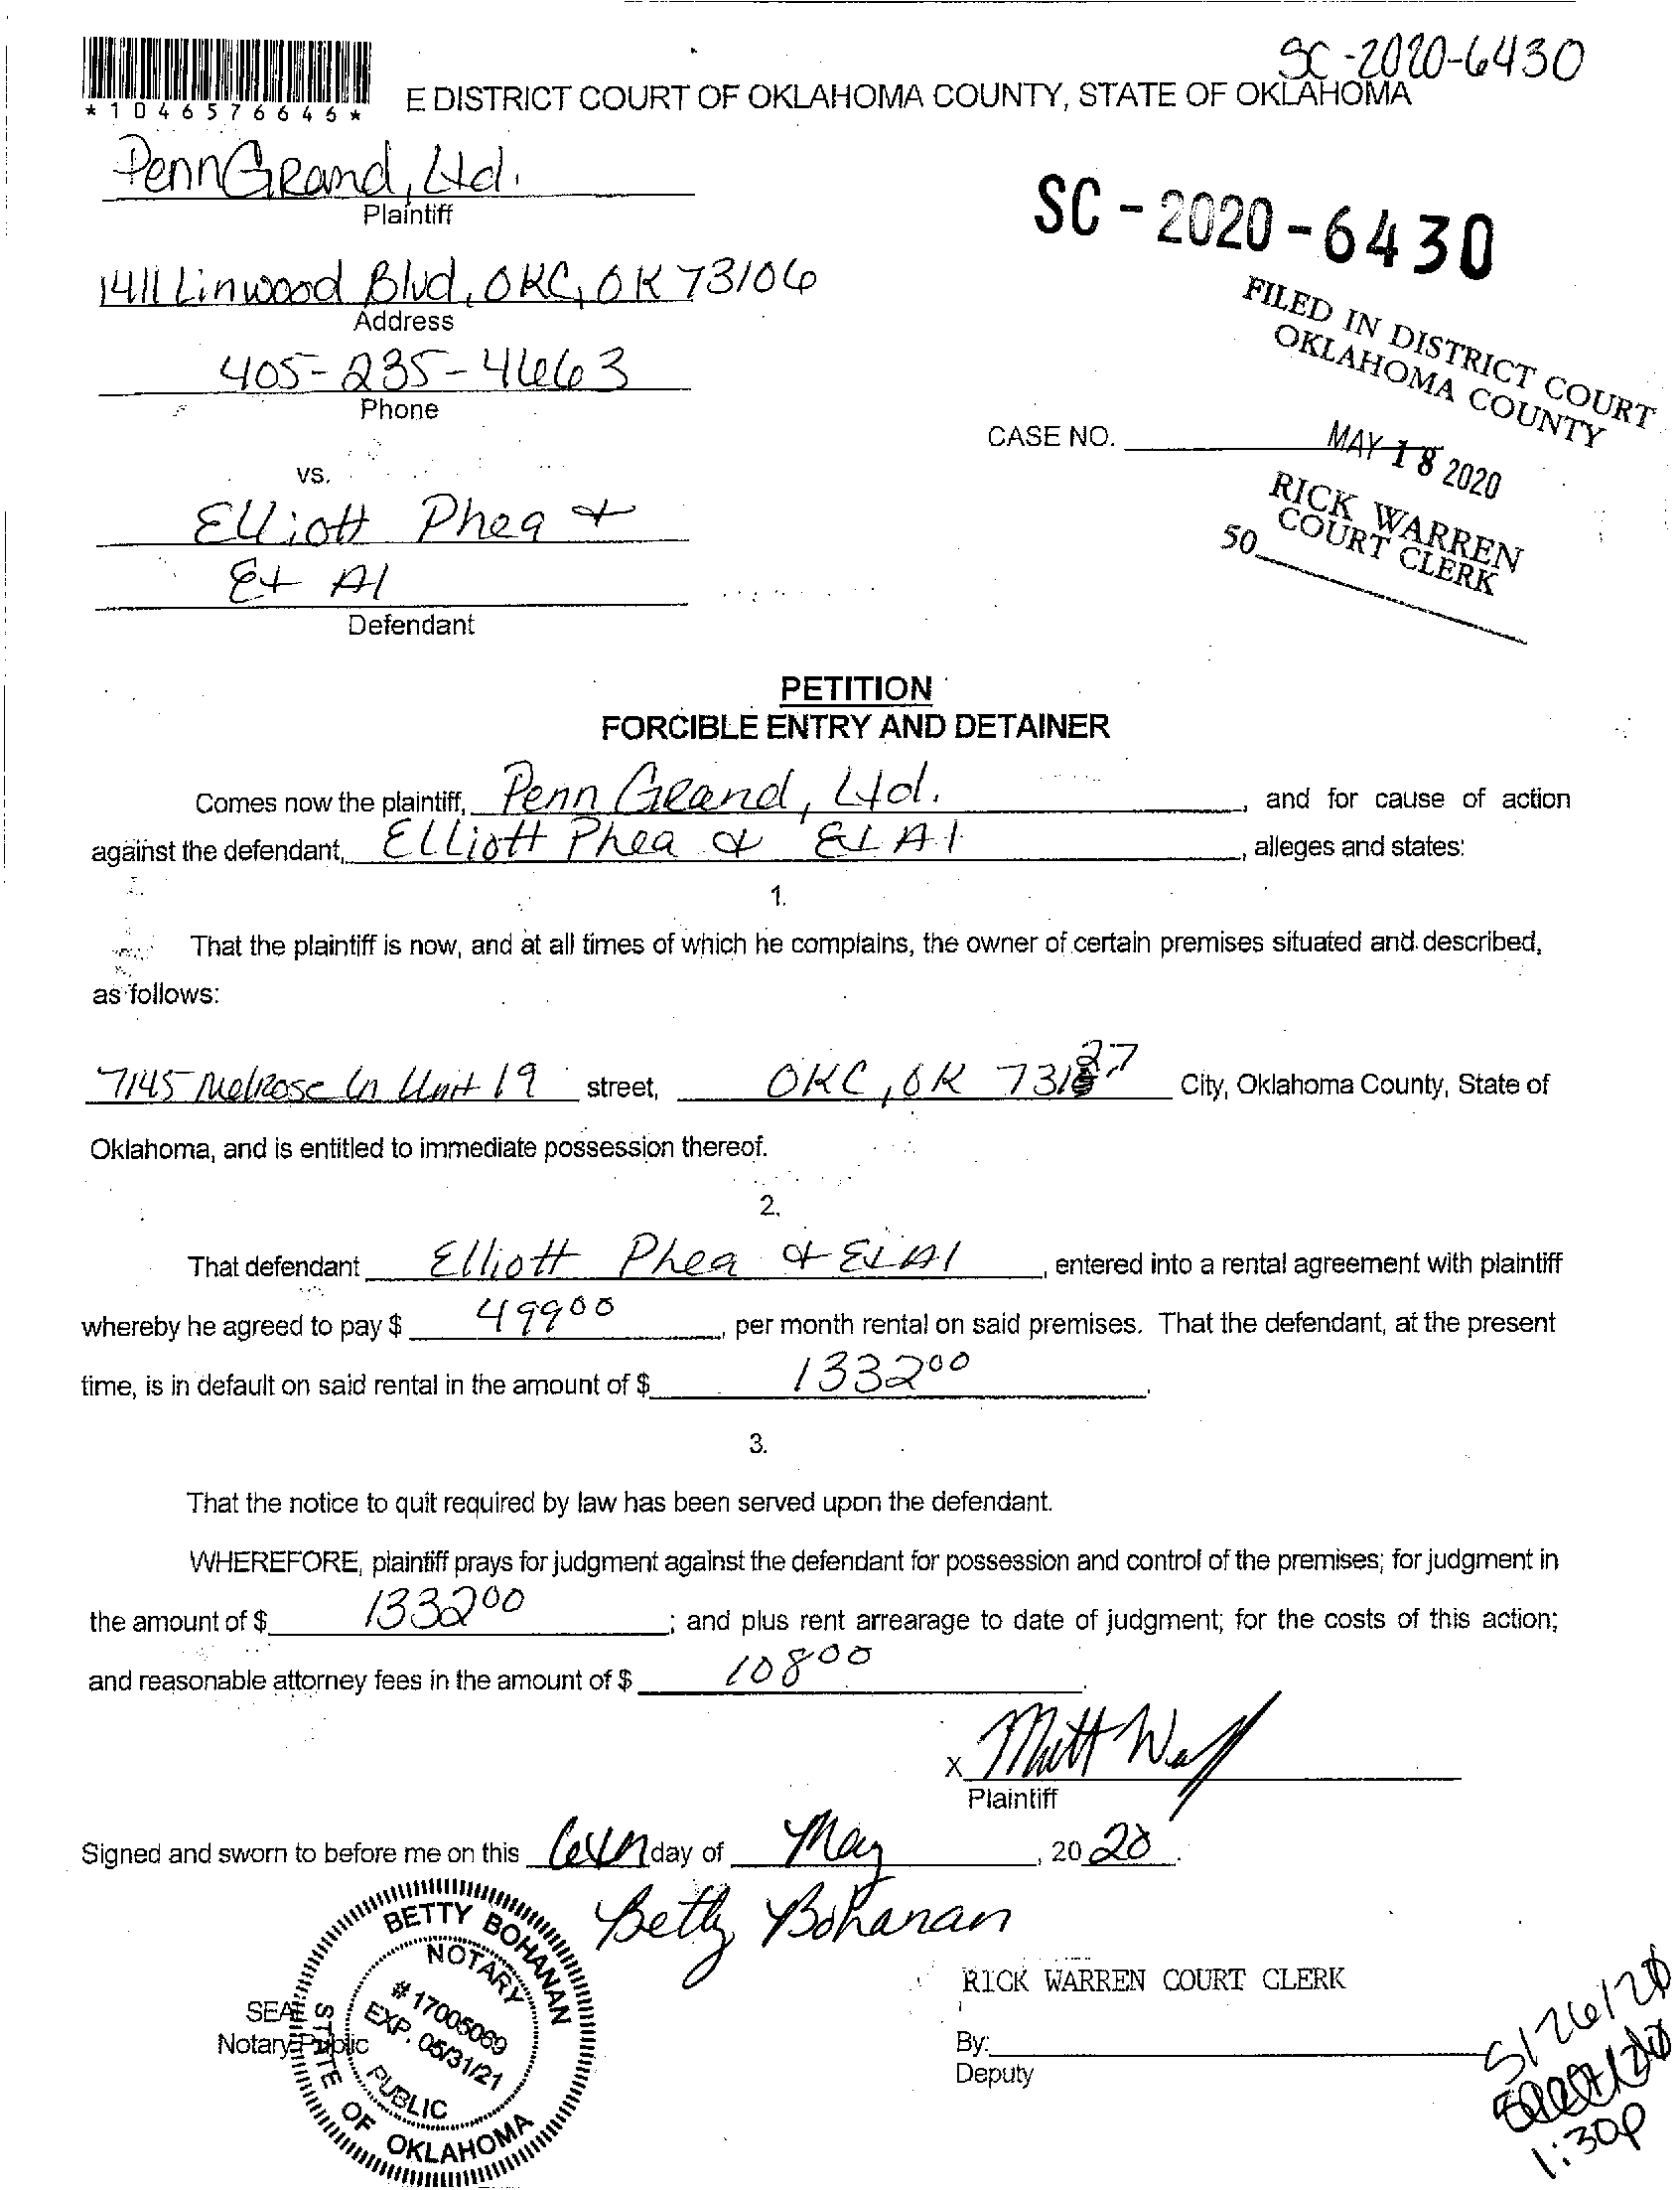 SC-2020-6430
*1046576646*
E DISTRICT COURT OF OKLAHOMA COUNTY, STATE OF OKLAHOMA
PennGRand, Ltd.
Plaintiff
SC-2020-6430
1411 Linwood Blvd, OKC, OK 73106
Address
FILED IN DISTRICT COURT
OKLAHOMA COUNTY
405-235-4663
Phone
CASE NO.
MAY 18 2020
vs.
RICK WARREN
COURT CLERK
50
Elliott Phea &
Et Al
Defendant
PETITION
FORCIBLE ENTRY AND DETAINER
Comes now the plaintiff, Penn GRand, Ltd., and for cause of action
against the defendant, Elliott Phea & Et Al, alleges and states:
1.
That the plaintiff is now, and at all times of which he complains, the owner of certain premises situated and described,
as follows:
7145 MelRose Ln Unit 19 street, OKC, OK 73127 City, Oklahoma County, State of
Oklahoma, and is entitled to immediate possession thereof.
2.
That defendant Elliott Phea & Et Al, entered into a rental agreement with plaintiff
whereby he agreed to pay $ 499 00, per month rental on said premises. That the defendant, at the present
time, is in default on said rental in the amount of $ 1332 00.
3.
That the notice to quit required by law has been served upon the defendant.
WHEREFORE, plaintiff prays for judgment against the defendant for possession and control of the premises; for judgment in
the amount of $ 1332 00; and plus rent arrearage to date of judgment; for the costs of this action;
and reasonable attorney fees in the amount of $ 108 00.
X Matt
Plaintiff
Signed and sworn to before me on this 6th day of May, 2020.
Betty Bohanan
BETTY BOHANAN
NOTARY
# 17005069
EXP. 05/31/21
PUBLIC
STATE OF OKLAHOMA
SEAL
Notary Public
RICK WARREN COURT CLERK
By:
Deputy
5/26/20
1:30p